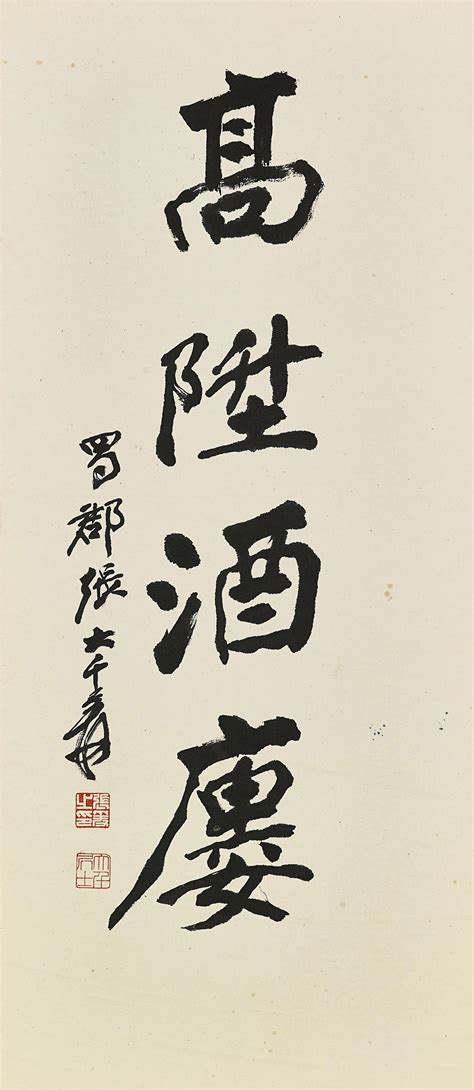 髙陞酒廔
蜀郡張大千爰
張爰之印
大千居士